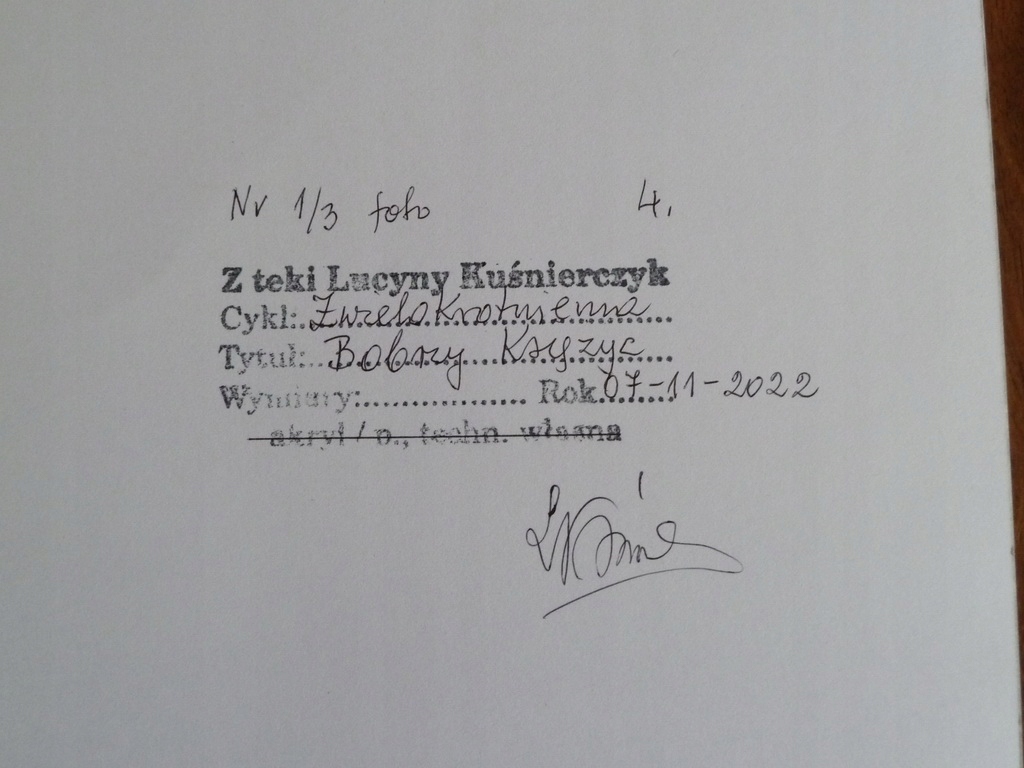 Nr 1/3 foto 4.
Z teki Lucyny Kuśnierczyk
Cykl: Zwielokrotnienna
Tytuł: Bobrzy Księżyc
Wymiary:.................. Rok 07-11-2022
akryl / p., techn. własna